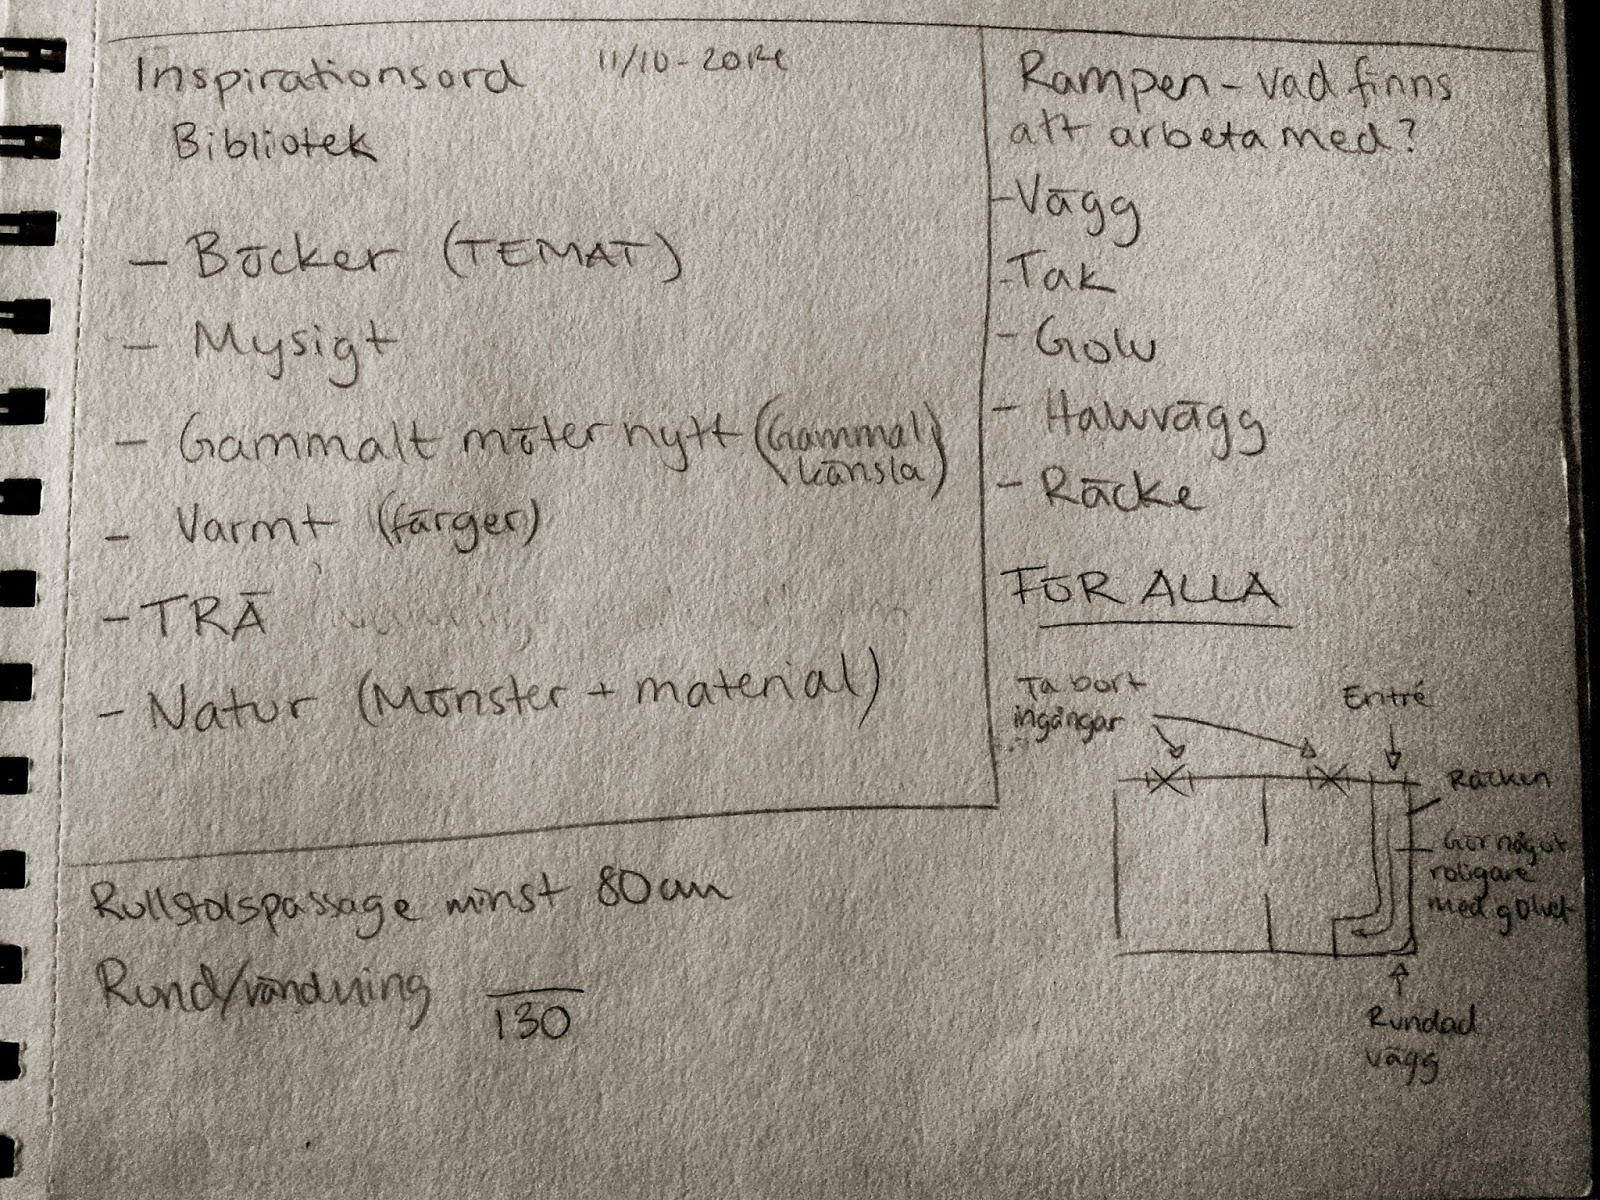 Inspirationsord 11/10-2012
Bibliotek
- Böcker (TEMAT)
- Mysigt
- Gammalt möter nytt (Gammal
känsla)
- Varmt (färger)
- TRÄ
- Natur (Mönster + material)
Rullstolspassage minst 80cm
Rund/vändning 130
Rampen - vad finns
att arbeta med?
- Vägg
- Tak
- Golv
- Halvvägg
- Räcke
FÖR ALLA
Ta bort
ingångar
Entré
Räcken
Gör något
roligare
med golvet
Rundad
vägg